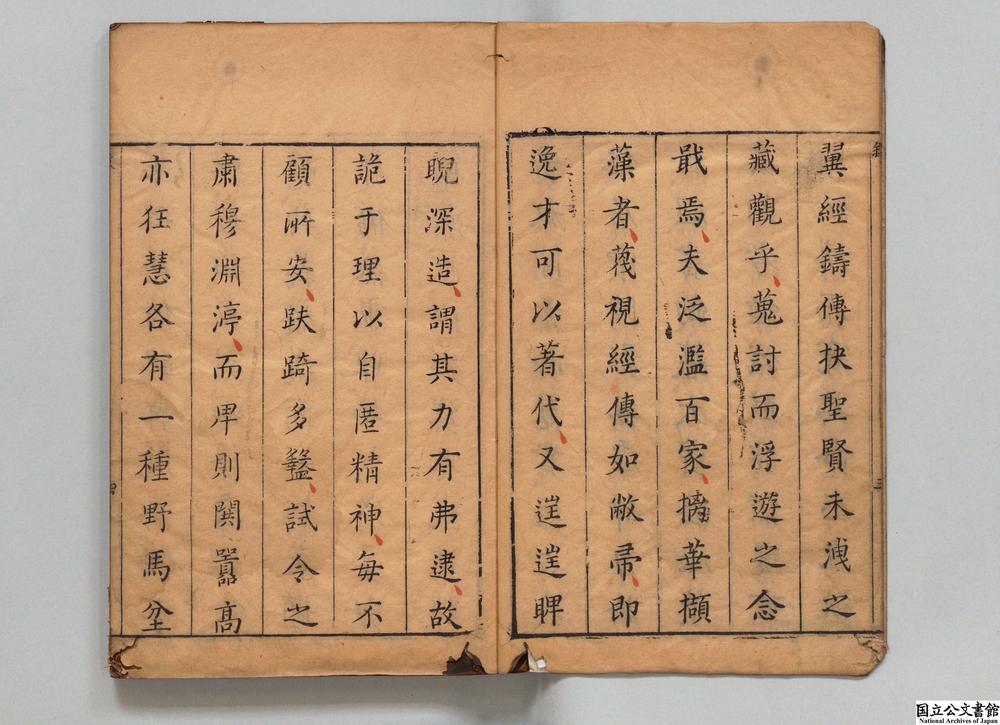 翼經鑄傳抉聖賢未洩之
藏觀乎蒐討而浮遊之念
戢焉夫泛濫百家摛華擷
藻者蔑視經傳如敝帚即
逸才可以著代又逞逞睥
睨深造謂其力有弗逮故
詭于理以自匿精神每不
顧所安趺踦多盭試令之
肅穆淵渟而卑則闃囂高
亦狂慧各有一種野馬坌
国立公文書館
National Archives of Japan